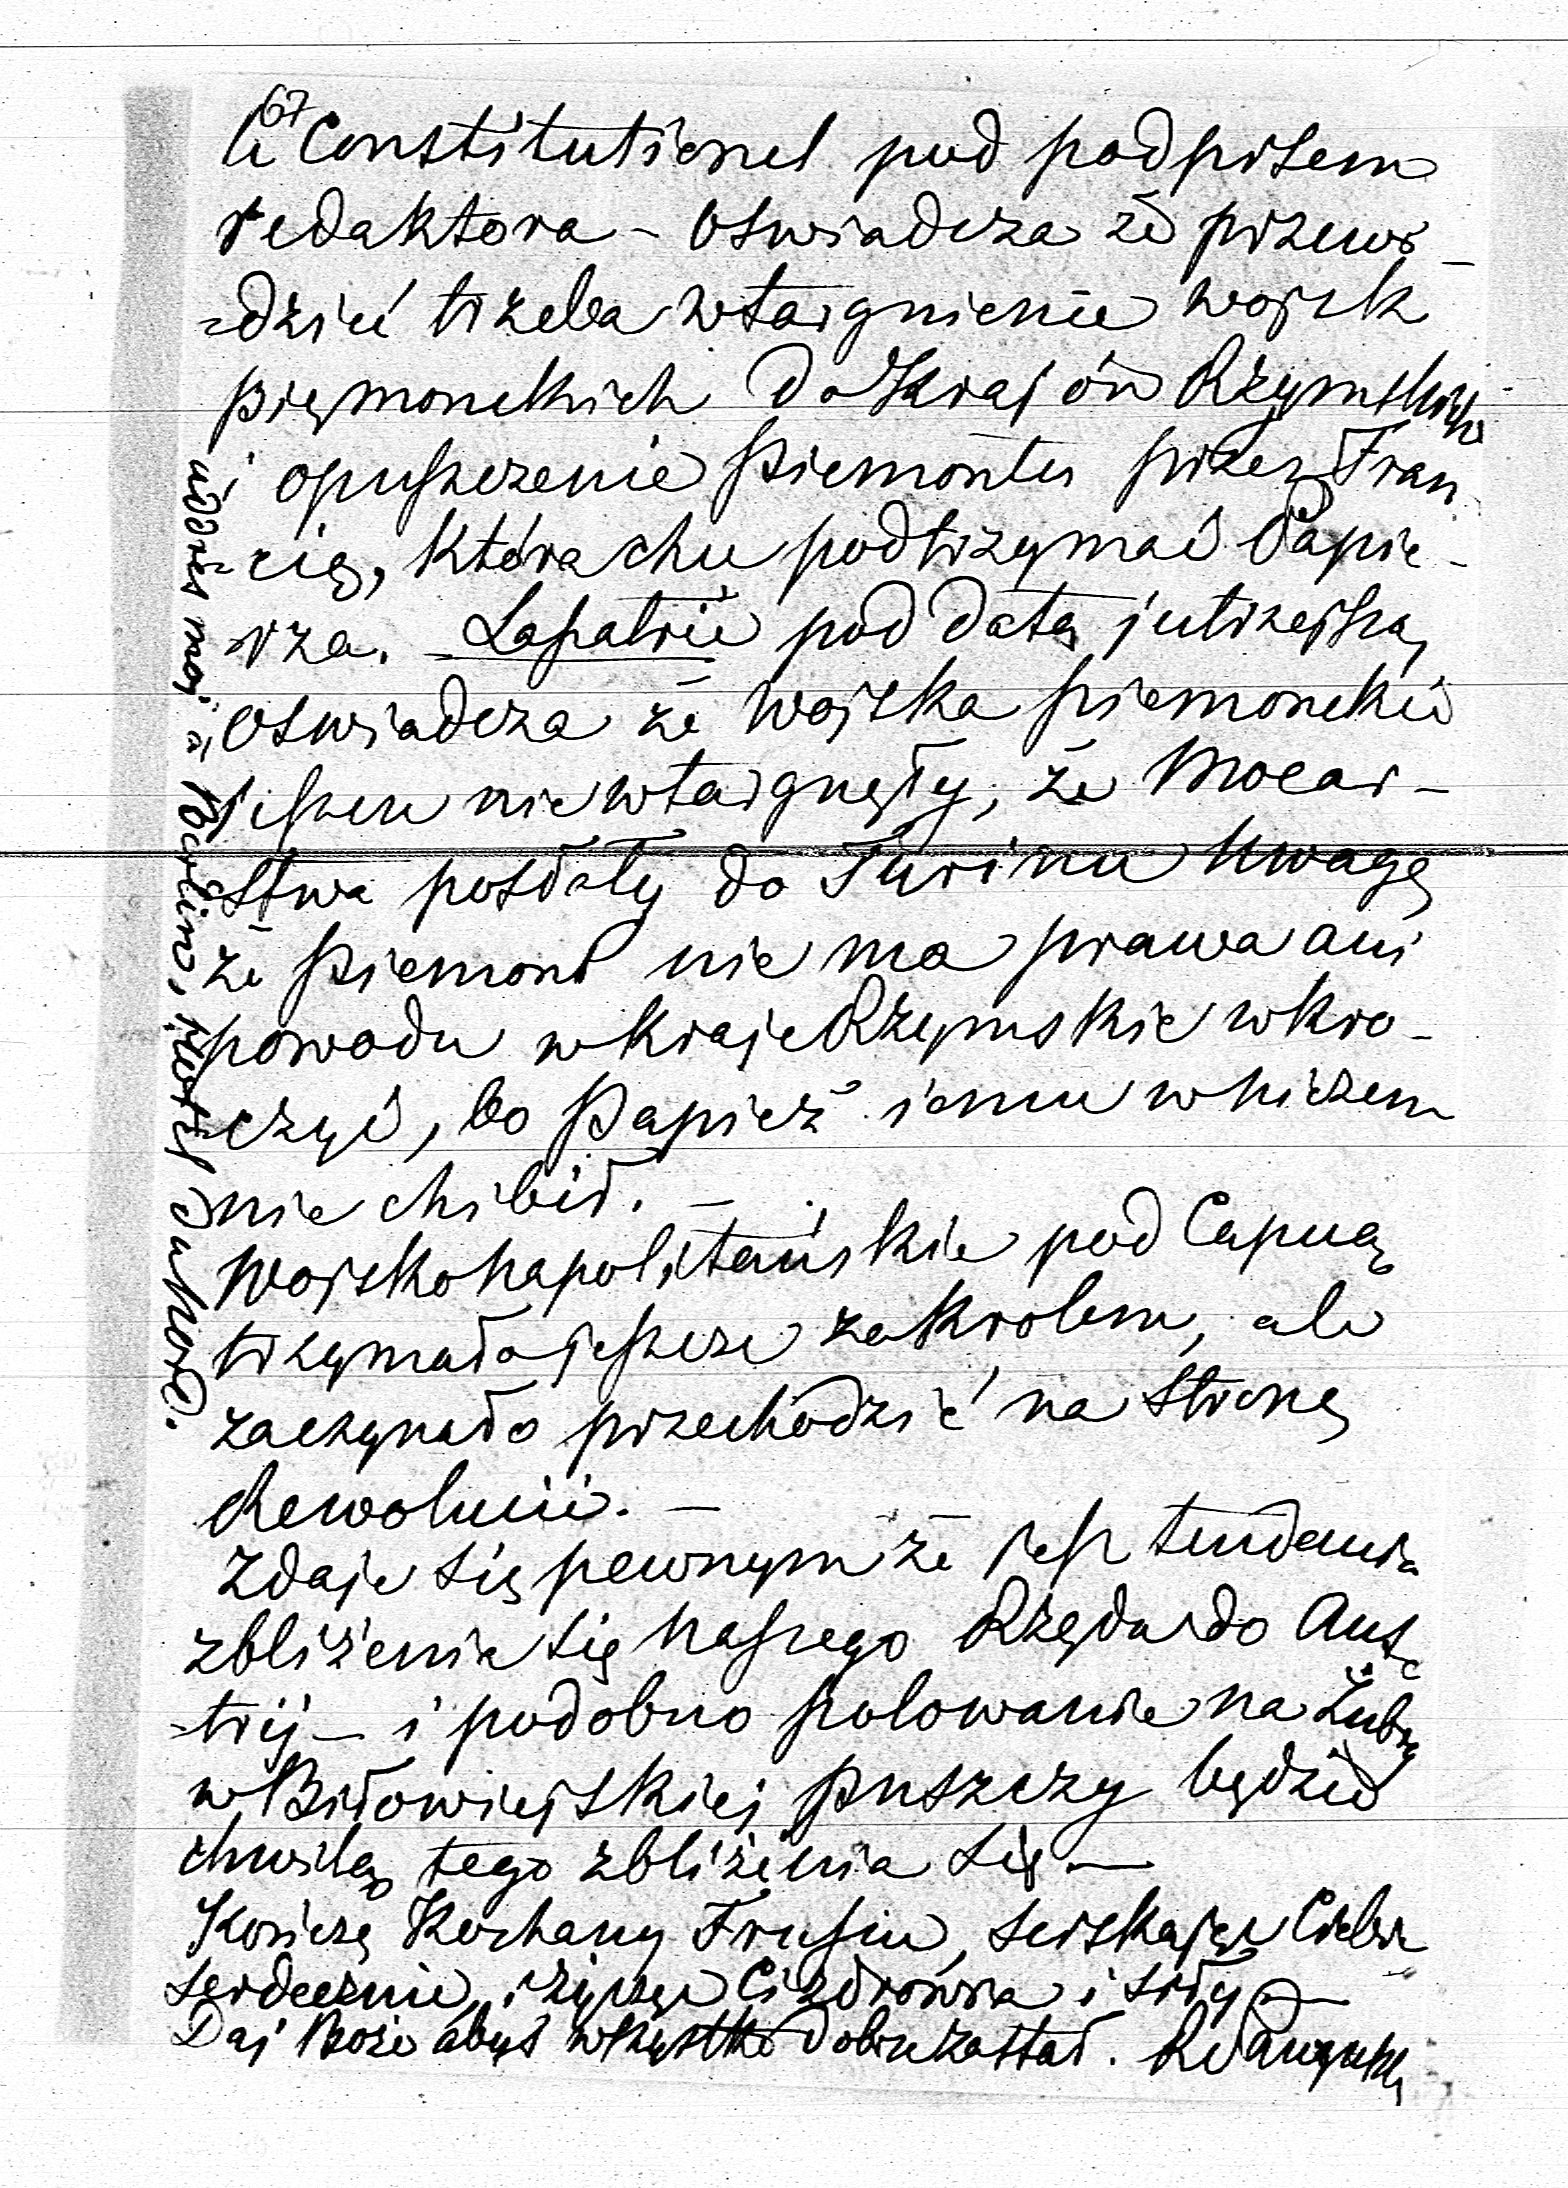 67
Le Constitutionel pod podpisem
redaktora - oswiadcza że przewi-
=dzieć trzeba wtargnienie wojsk
piemonckich do Krajów Rzymskich
i opuszczenie Piemontu przez Fran
=cię, która chce podtrzymać Papie-
rza. - La Patrie pod datą jutrzejszą
oswiadcza że wojska piemonckie
jeszcze nie wtargnęły, że Mocar-
stwa posłały do Turinu uwagę
że Piemont nie ma prawa ani
powodu w kraje Rzymskie wkro-
=czyć, bo Papież iemu w niczem
nie chibił. -
Wojsko napolitańskie pod Capuą
trzymało jeszcze za Krolem, ale
zaczynało przechodzić na stronę
Rewolucii. -
Zdaje się pewnym że jest tendencia
zbliżenia się naszego Rządu do Aus
=trij - i podobno polowanie na Żubry
w Biłowiejskiej puszczy będzie
chwilą tego zbliżenia się -
Kończę Kochany Frusiu, sciskając Ciebie
serdecznie, i życząc Ci zdrowia i siły -
Daj Boże abyś wszystko dobrze zastał.
addres moj a Berlin,